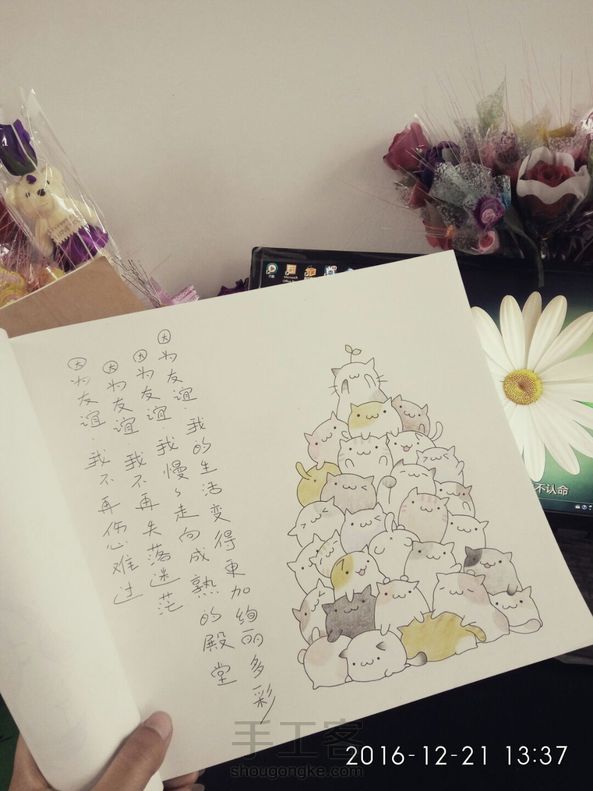 因为友谊·我的生活变得更加绚丽多彩
因为友谊·我慢々走向成熟的殿堂
因为友谊·我不再失落迷茫
因为友谊·我不再伤心难过
不认命
手工客
shougongke.com
2016-12-21 13:37